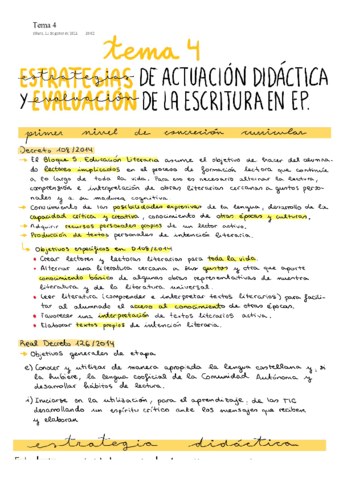 Tema 4
tema 4
ESTRATEGIAS DE ACTUACIÓN DIDÁCTICA
Y EVALUACIÓN DE LA ESCRITURA EN EP.
primer nivel de concreción curricular
Decreto 108/2014
→ El Bloque 5. Educación Literaria asume el objetivo de hacer del alumna-
do lectores implicados en el proceso de formación lectora que continúe
a lo largo de toda la vida. Para eso es necesario alternar la lectura,
comprensión e interpretación de obras literarias cercanas a gustos perso-
nales y a su madurez cognitiva
→ Conocimiento de las posibilidades expresivas de la lengua, desarrollo de la
capacidad crítica y creativa, conocimiento de otras épocas y culturas.
→ Adquirir recursos personales propios de un lector activo.
→ Producción de textos personales de intención literaria.
Objetivos específicos en D.108/2014
Crear lectores y lectoras literarias para toda la vida
Alternar una literatura cercana a sus gustos y otra que aporte
conocimiento básico de algunas obras representativas de nuestra
literatura y de la literatura universal.
Leer literatura (comprender e interpretar textos literarios) para facili-
tar al alumnado el acceso al conocimiento de otras épocas.
Favorecer una interpretación de textos literarios activa.
Elaborar textos propios de intención literaria.
Real Decreto 126/2014
→ Objetivos generales de etapa
e) Conocer y utilizar de manera apropiada la lengua castellana y, si
la hubiere, la lengua cooficial de la Comunidad Autónoma y
desarrollar hábitos de lectura.
i) Iniciarse en la utilización, para el aprendizaje, de las TIC
desarrollando un espíritu crítico ante los mensajes que reciben
y elaboran
estrategia didáctica